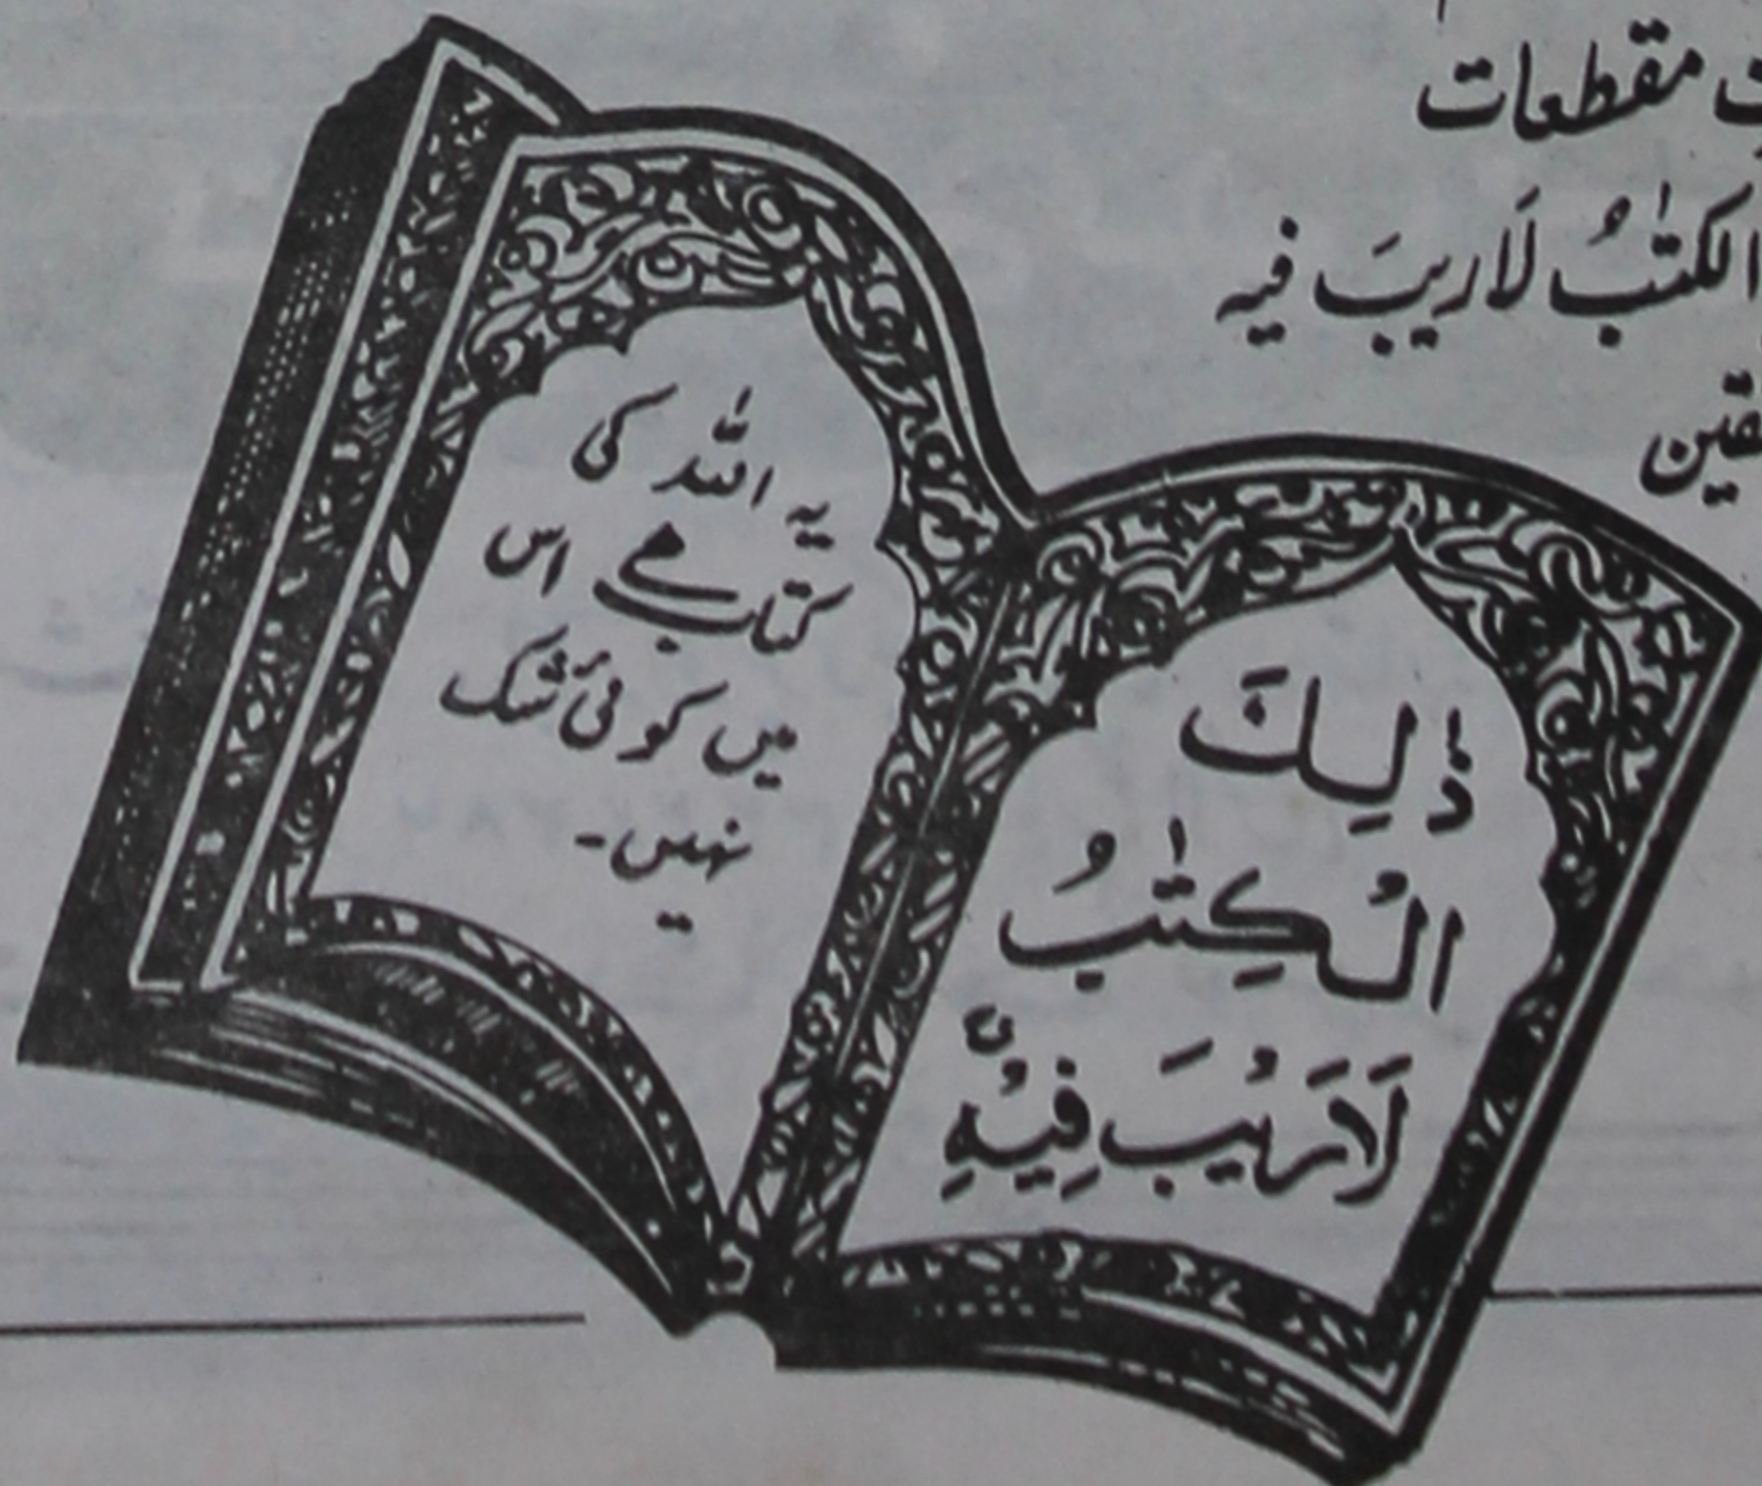 مقطعات
الكتٰبُ لَاریبَ فیہ
ذٰلِكَ
الْكِتٰبُ
لَارَیْبَ فِیْہِ
یہ اللہ کی
کتاب ہے اس
میں کوئی شک
نہیں۔